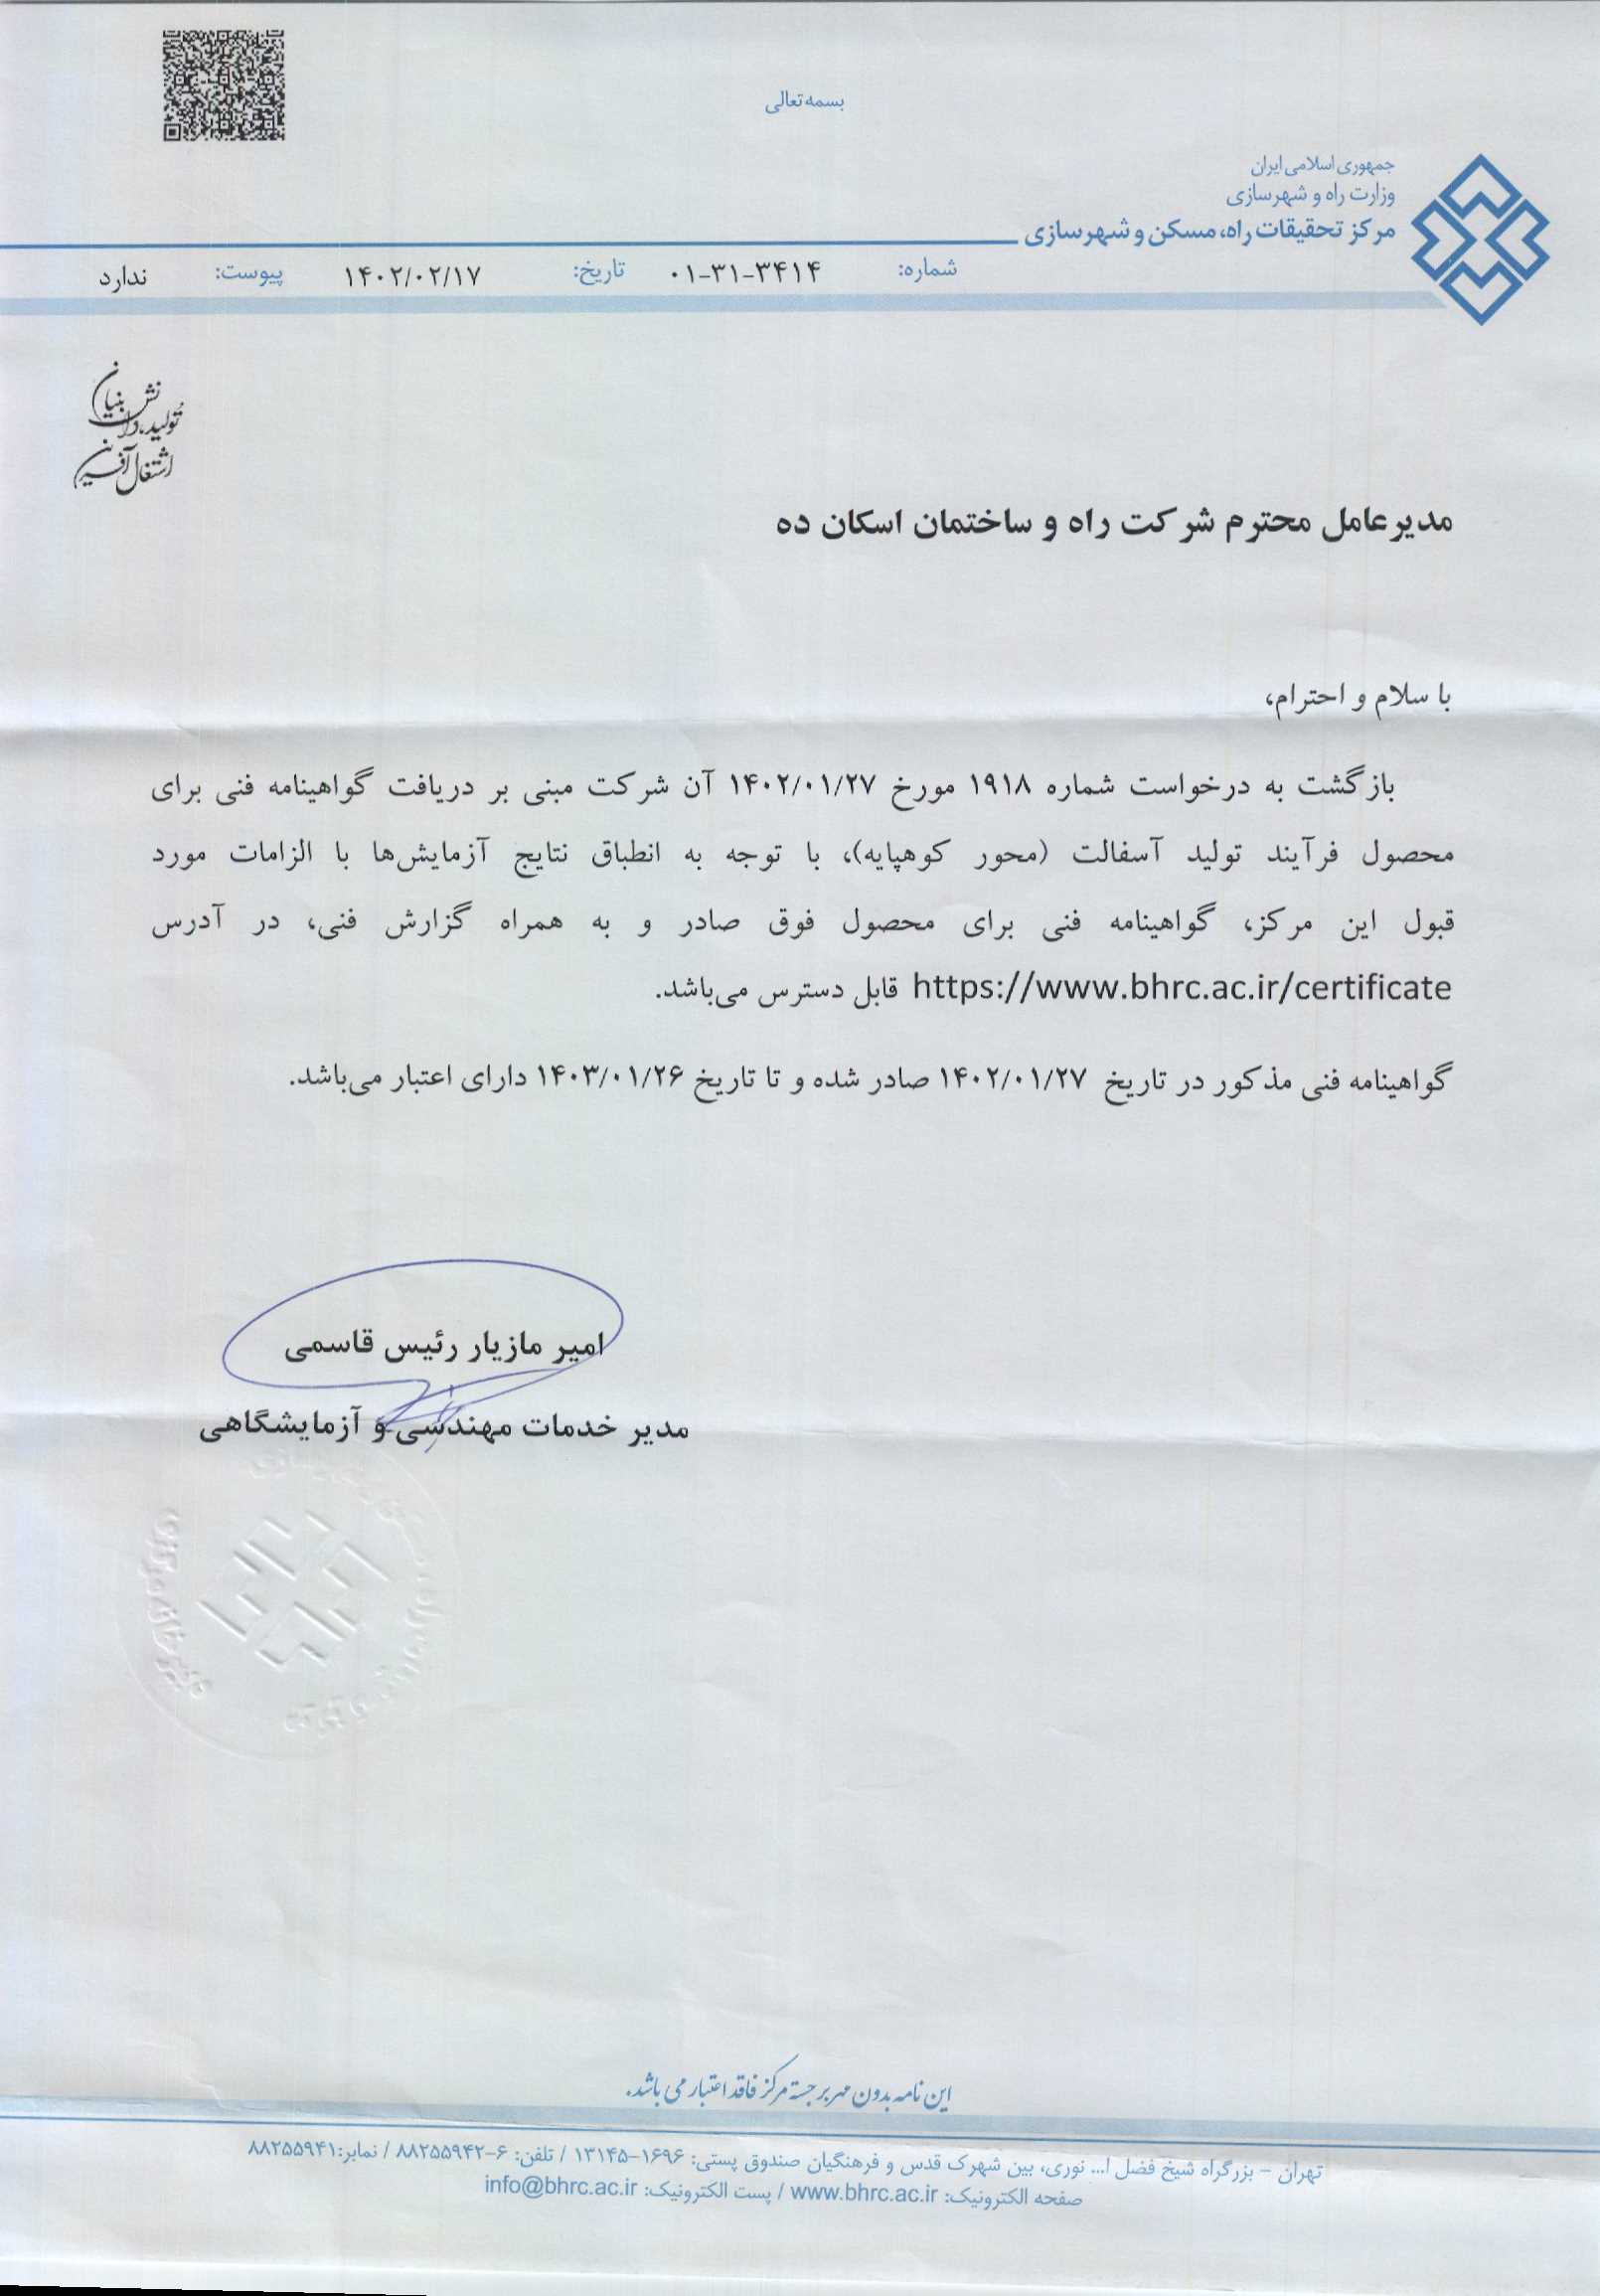 بسمه تعالی
جمهوری اسلامی ایران
وزارت راه و شهرسازی
مرکز تحقیقات راه، مسکن و شهرسازی
شماره: ۰۱-۳۱-۳۴۱۴ تاریخ: ۱۴۰۲/۰۲/۱۷ پیوست: ندارد
تولید، دانش بنیان
اشتغال آفرین
مدیرعامل محترم شرکت راه و ساختمان اسکان ده
با سلام و احترام،
بازگشت به درخواست شماره ۱۹۱۸ مورخ ۱۴۰۲/۰۱/۲۷ آن شرکت مبنی بر دریافت گواهینامه فنی برای
محصول فرآیند تولید آسفالت (محور کوهپایه)، با توجه به انطباق نتایج آزمایش‌ها با الزامات مورد
قبول این مرکز، گواهینامه فنی برای محصول فوق صادر و به همراه گزارش فنی، در آدرس
https://www.bhrc.ac.ir/certificate قابل دسترس می‌باشد.
گواهینامه فنی مذکور در تاریخ ۱۴۰۲/۰۱/۲۷ صادر شده و تا تاریخ ۱۴۰۳/۰۱/۲۶ دارای اعتبار می‌باشد.
امیر مازیار رئیس قاسمی
مدیر خدمات مهندسی و آزمایشگاهی
این نامه بدون مهر برجسته مرکز فاقد اعتبار می باشد.
تهران - بزرگراه شیخ فضل ا... نوری، بین شهرک قدس و فرهنگیان صندوق پستی: ۱۶۹۶-۱۳۱۴۵ / تلفن: ۶-۸۸۲۵۵۹۴۲ / نمابر:۸۸۲۵۵۹۴۱
صفحه الکترونیک: www.bhrc.ac.ir / پست الکترونیک: info@bhrc.ac.ir